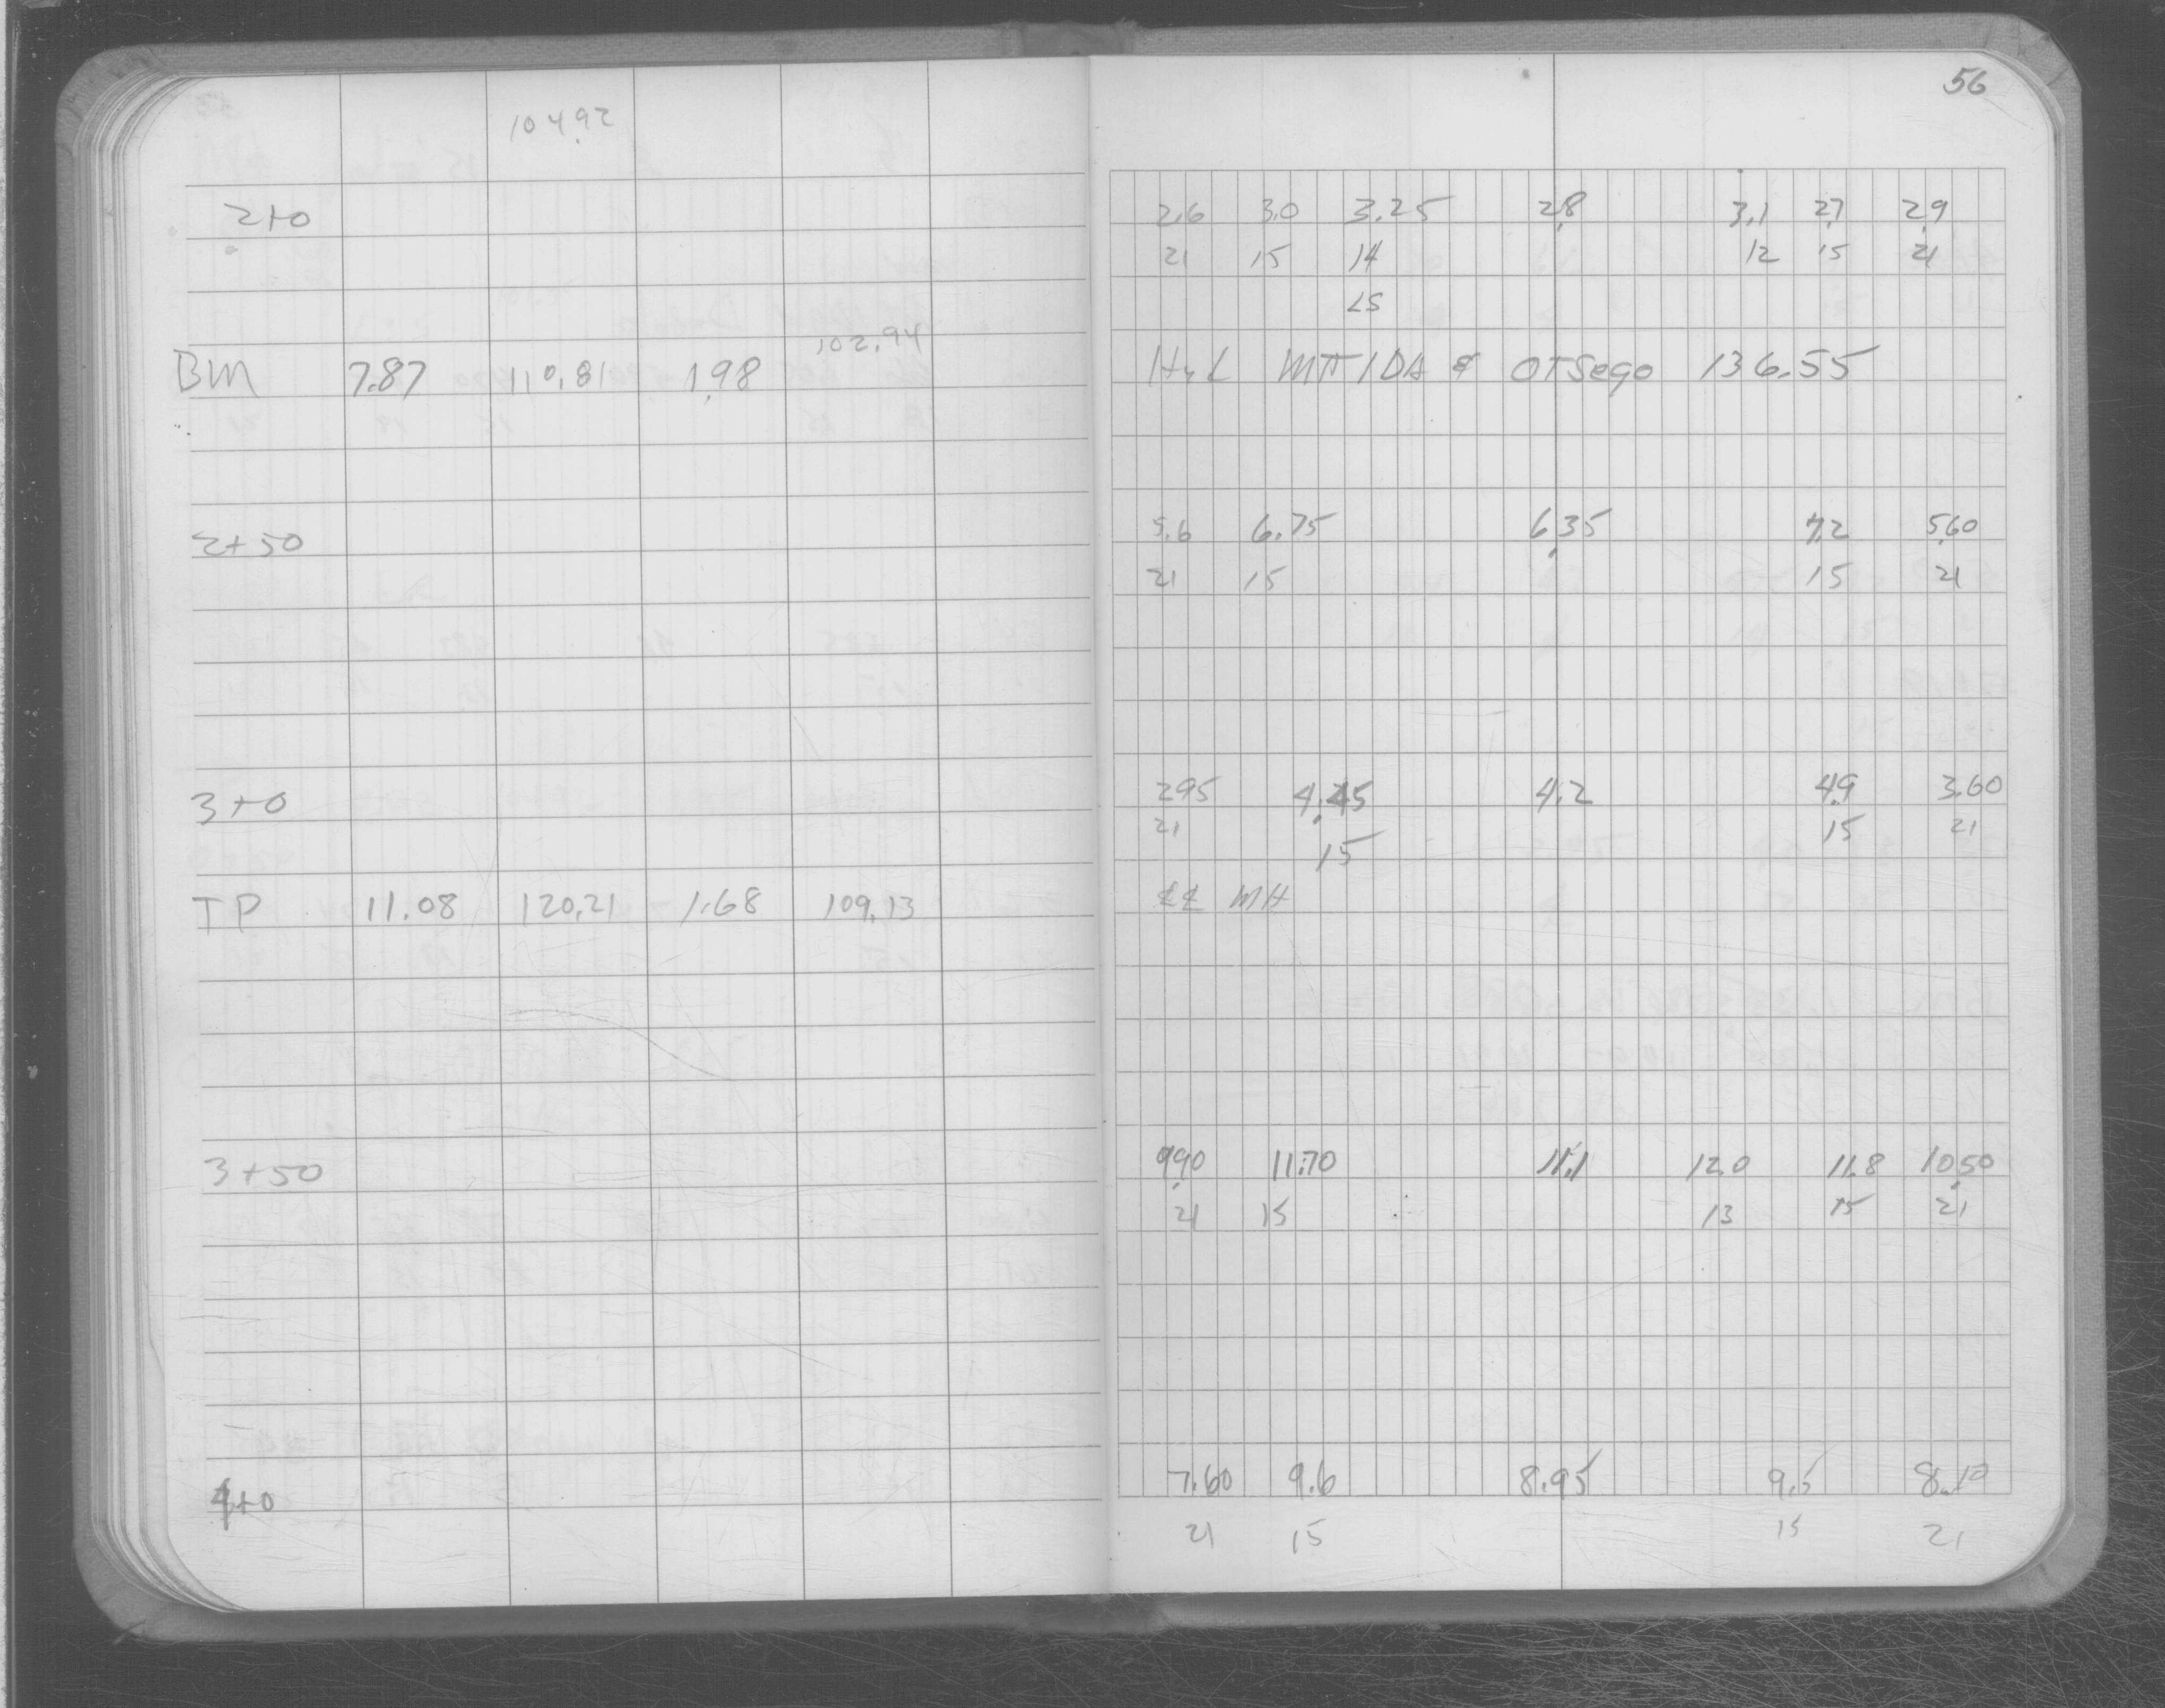 56
104.92
2+0 2.6 3.0 3.25 2.8 3.1 2.7 2.9
21 15 14 12 15 21
LS
102.94
BM 7.87 110.81 1.98 Hyd MT IDA & OTSego 136.55
2+50 5.6 6.75 6.35 7.2 5.60
21 15 15 21
3+0 2.95 4.45 4.2 4.9 3.60
21 15 15 21
TP 11.08 120.21 1.68 109.13 MH
3+50 9.90 11.70 11.1 12.0 11.8 10.50
21 15 13 15 21
4+0 7.60 9.6 8.95 9.5 8.10
21 15 15 21